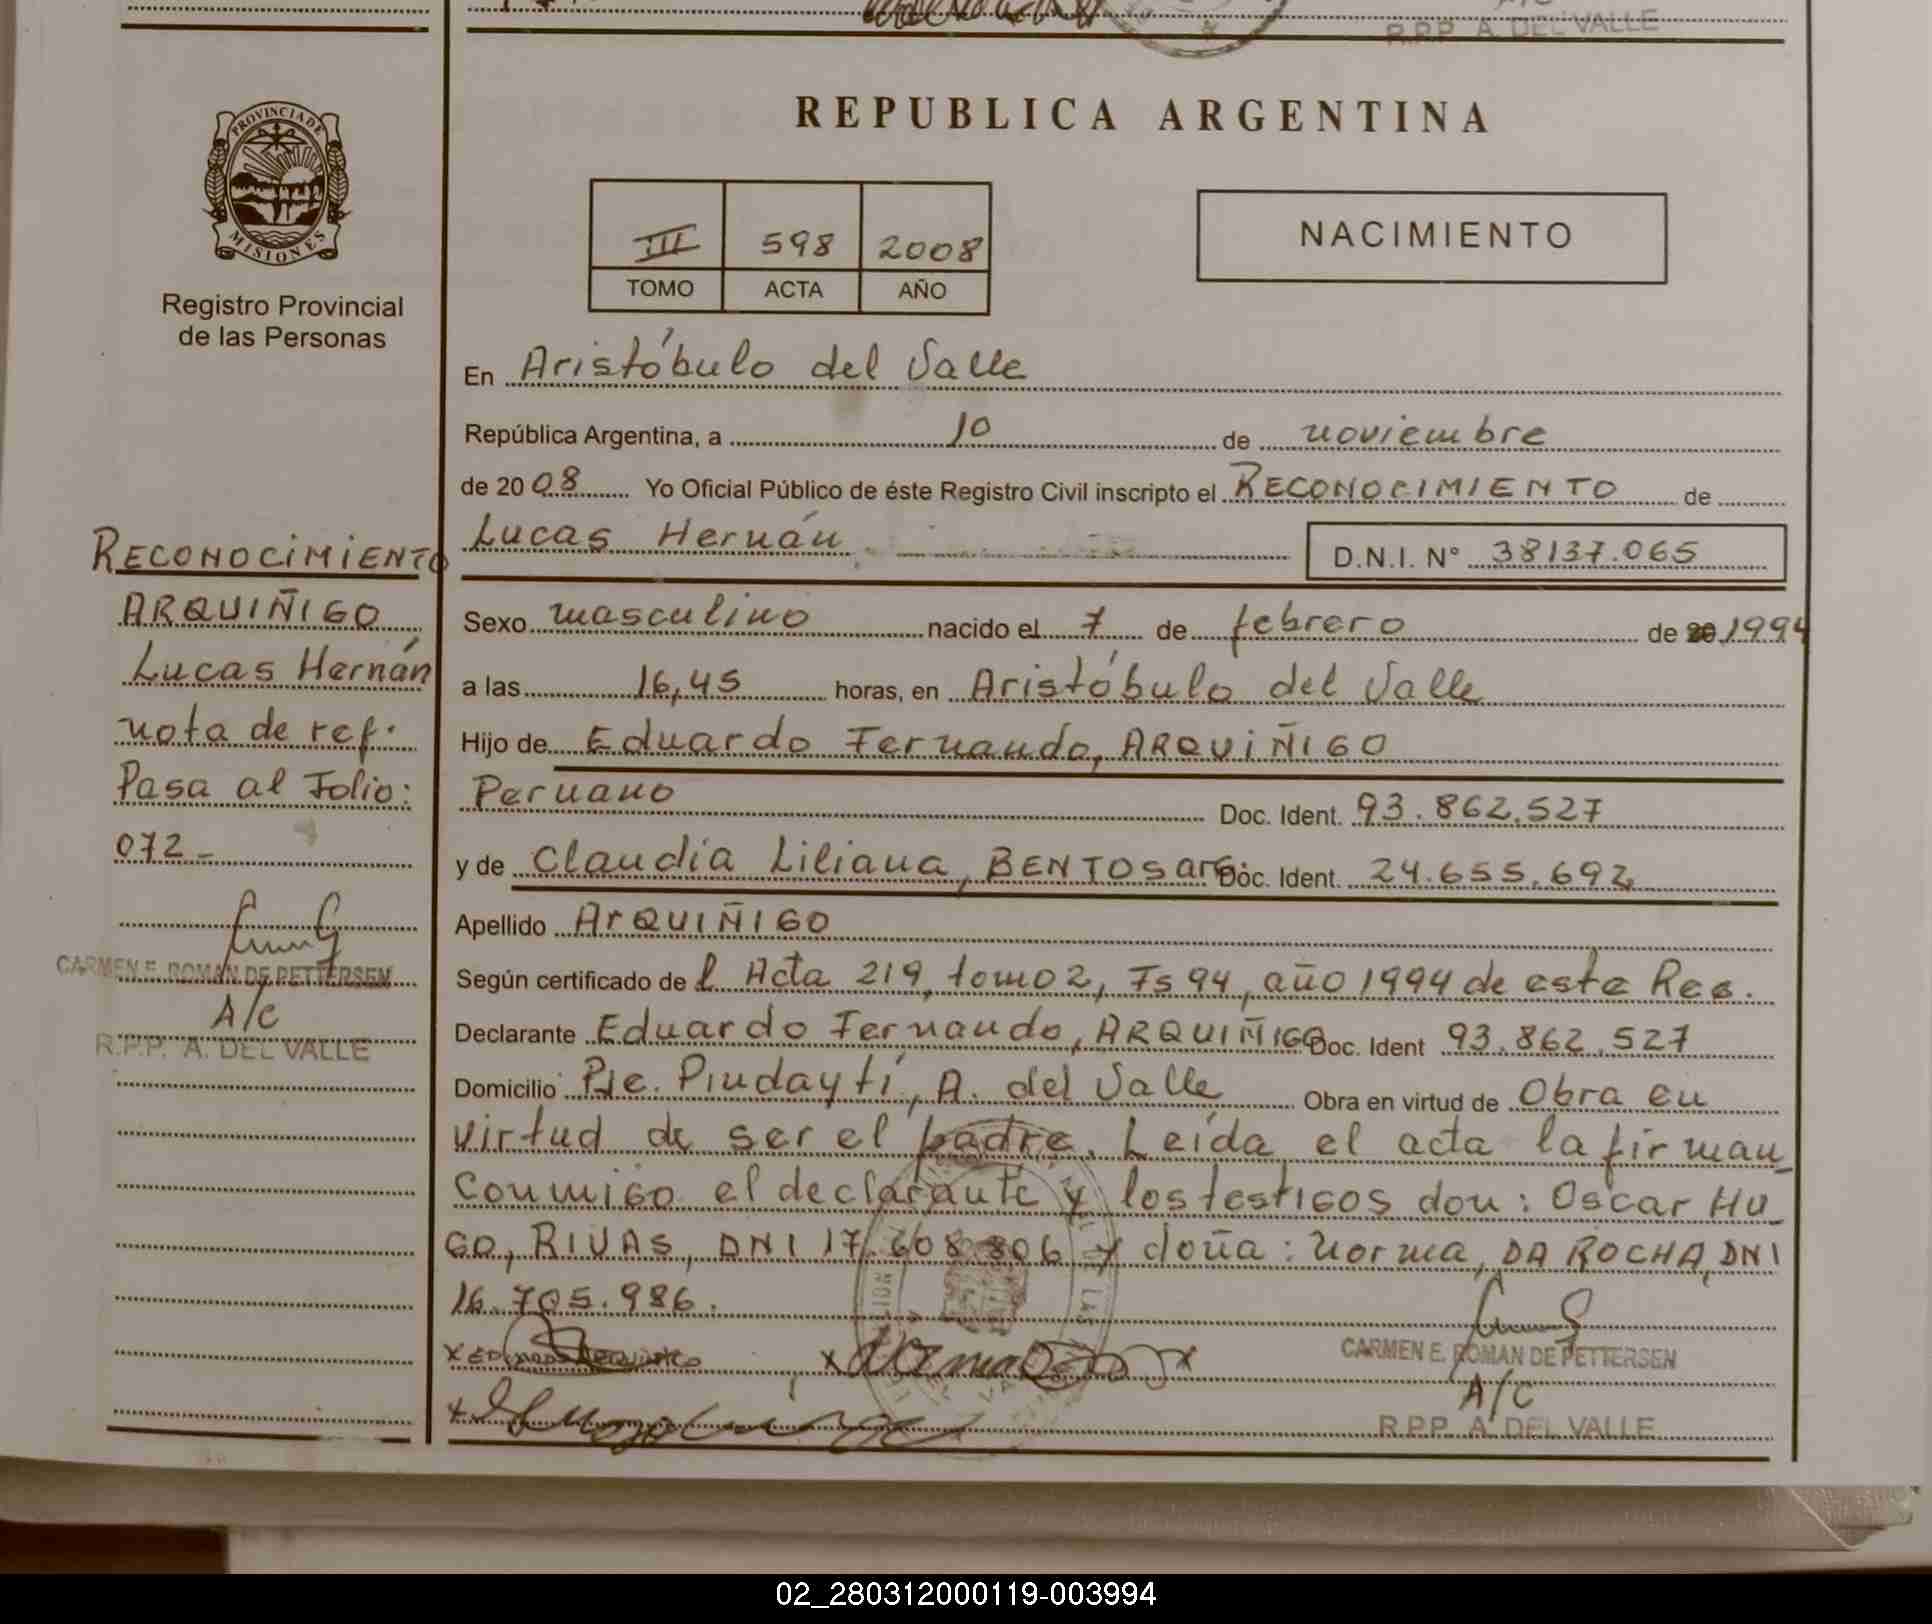 R.P.P. A. DEL VALLE
PROVINCIA DE
MISIONES
Registro Provincial
de las Personas
REPUBLICA ARGENTINA
III 598 2008
TOMO ACTA AÑO
NACIMIENTO
En Aristóbulo del Valle
República Argentina, a 10 de noviembre
de 2008 Yo Oficial Público de éste Registro Civil inscripto el RECONOCIMIENTO de
Lucas Hernán D.N.I. N° 38137.065
Sexo masculino nacido el 7 de febrero de 20 1994
a las 16,45 horas, en Aristóbulo del Valle
Hijo de Eduardo Fernando, ARQUIÑIGO
Peruano Doc. Ident. 93.862.527
y de Claudia Liliana, BENTOS arg Doc. Ident. 24.655.692
Apellido ArQUIÑIGO
Según certificado de l Acta 219, tomo 2, Fs 94, año 1994 de este Reg.
Declarante Eduardo Fernando, ARQUIÑIGO Doc. Ident 93.862.527
Domicilio Pje. Pindaytí, A. del Valle Obra en virtud de Obra en
virtud de ser el padre. Leída el acta la firman
conmigo el declarante y los testigos don: Oscar Hu_
GO, RIVAS, DNI 17.608.806 y doña: Norma, DA ROCHA, DNI
16.705.986.
CARMEN E. ROMAN DE PETTERSEN
A/C
R.P.P. A. DEL VALLE
RECONOCIMIENTO
ARQUIÑIGO
Lucas Hernán
nota de ref.
Pasa al Folio:
072_
CARMEN E. ROMAN DE PETTERSEN
A/C
R.P.P. A. DEL VALLE
02_280312000119-003994